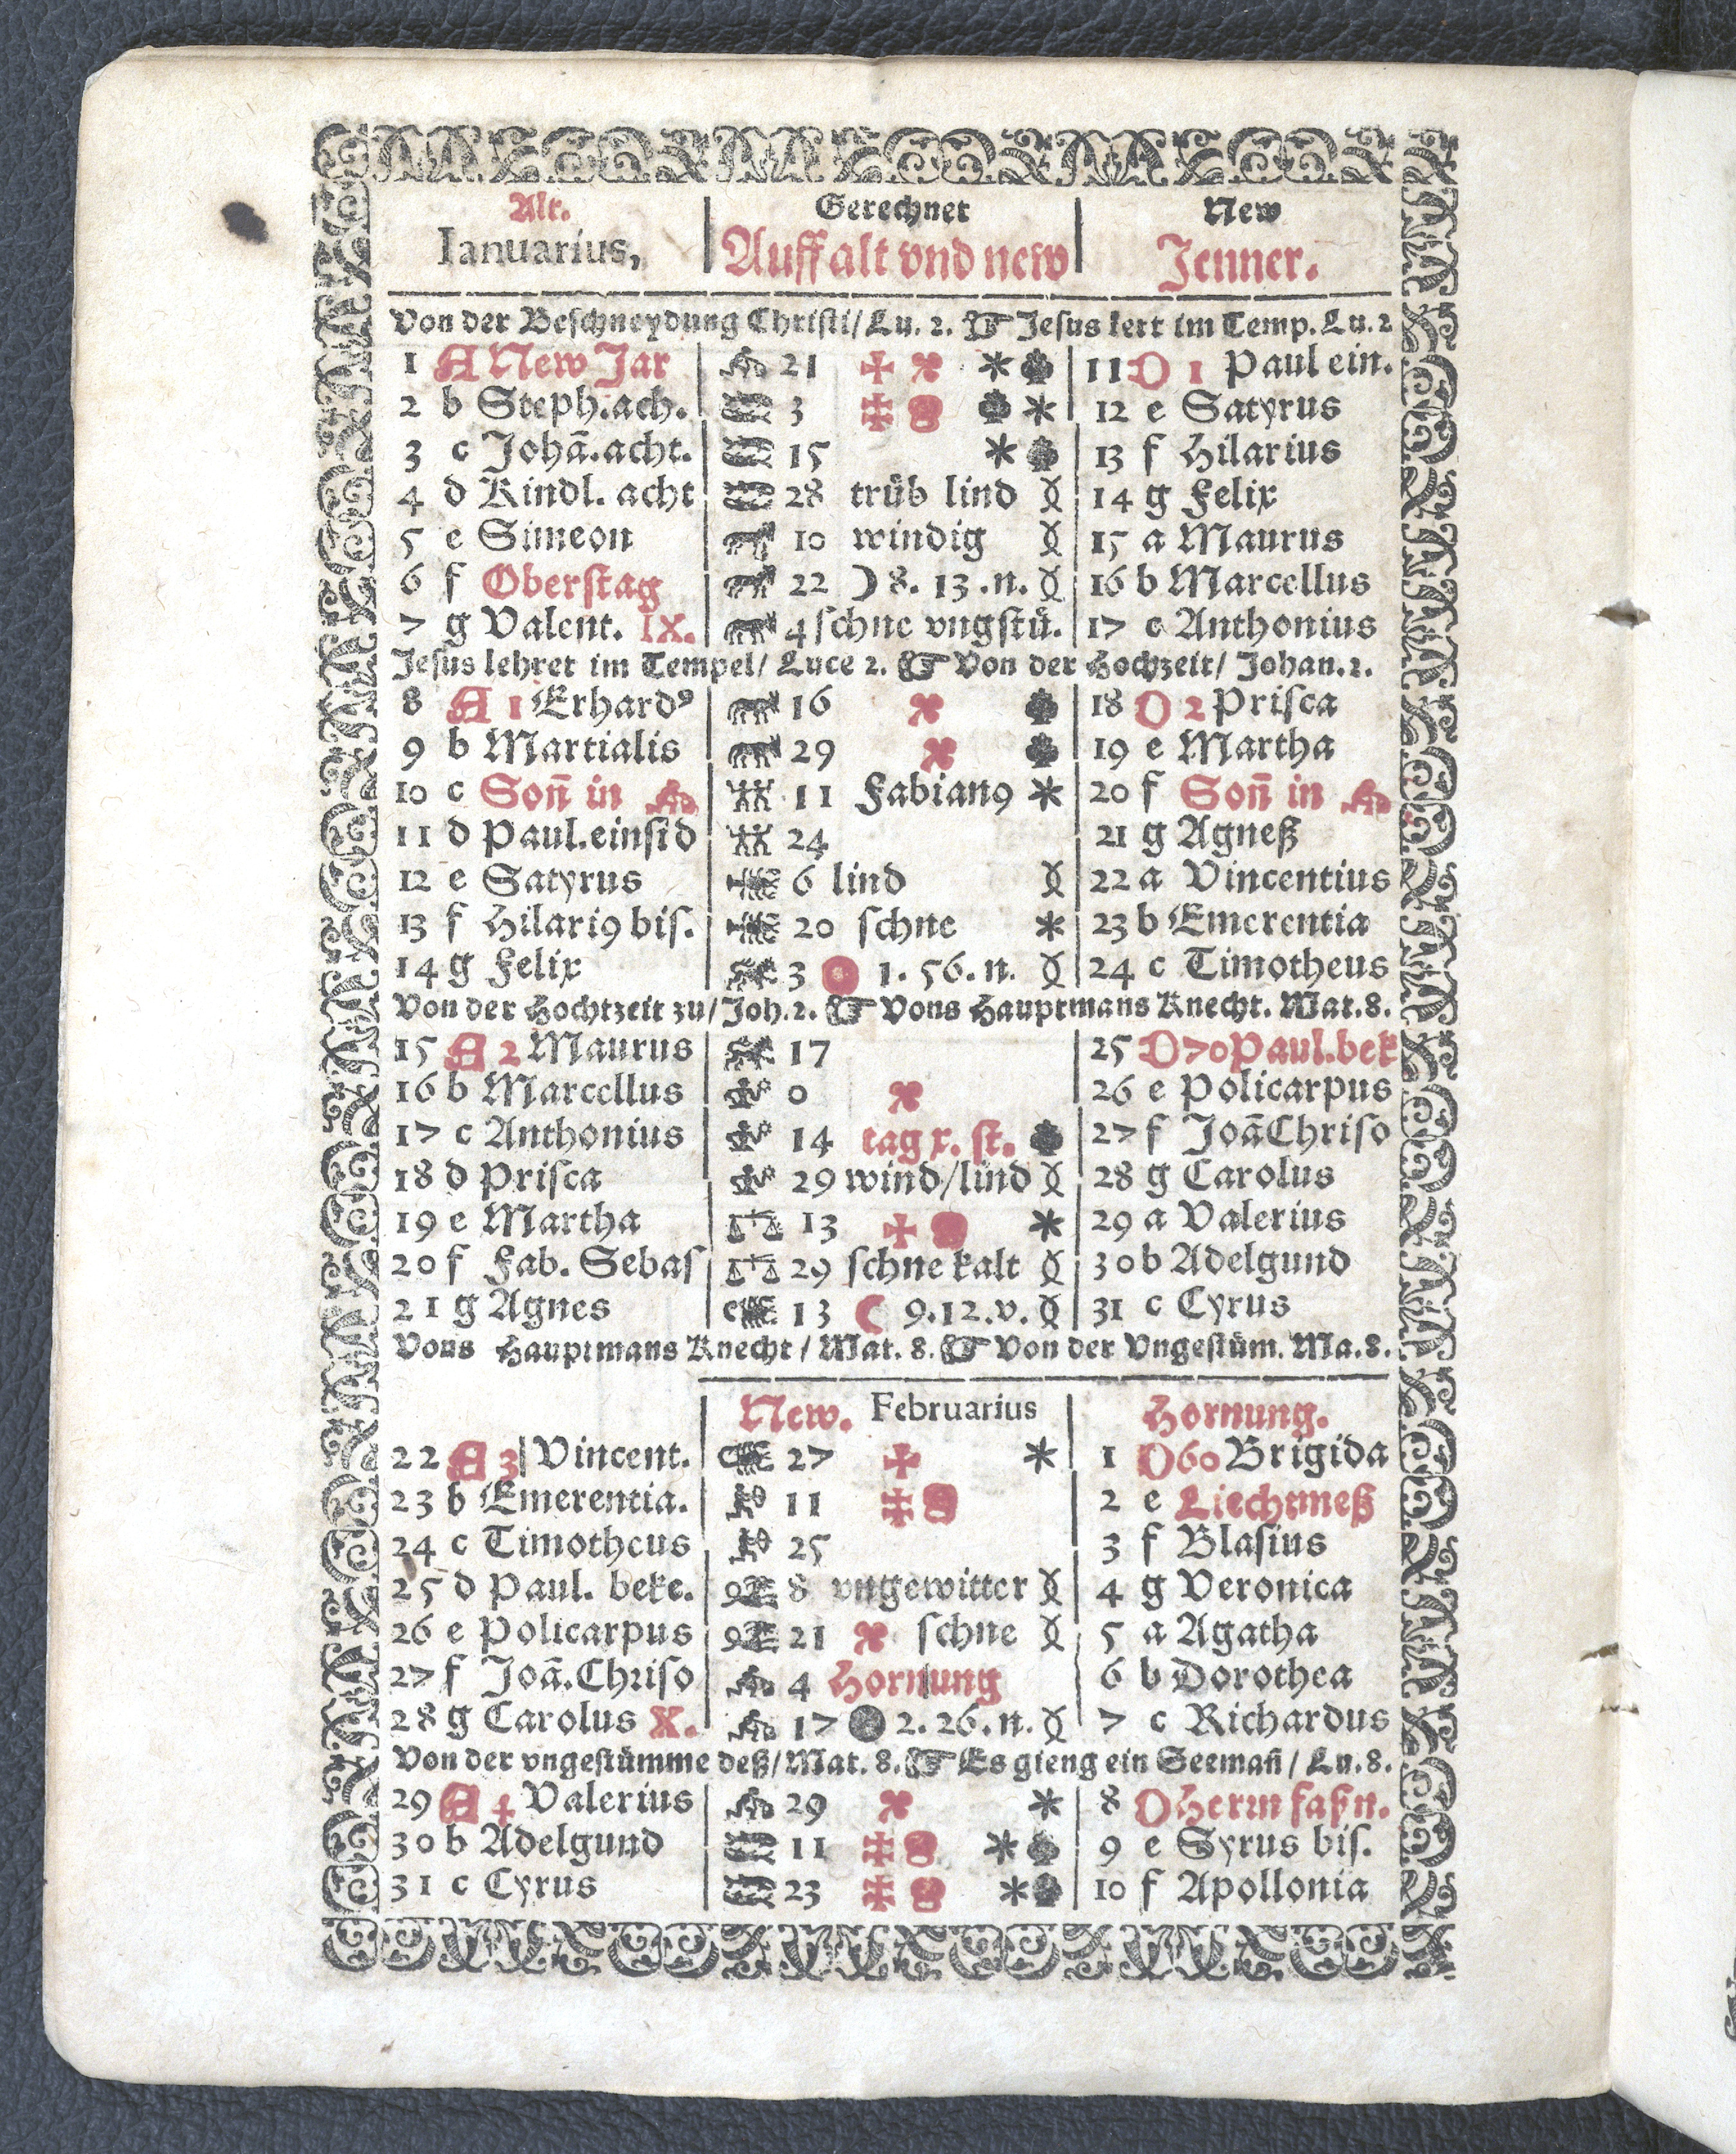 Alt. Gerechnet New
Ianuarius, Auff alt vnd new Jenner.
Von der Beschneydung Christi/ Lu. 2. ☞ Jesus kert im Temp. Lu. 2
1 A New Jar 21 11 D 1 Paul ein.
2 b Steph. ach. 3 12 e Satyrus
3 c Johā. acht. 15 13 f Hilarius
4 d Kindl. acht 28 trüb lind 14 g Felix
5 e Simeon 10 windig 15 a Maurus
6 f Oberstag 22 ☽ 8. 13. n. 16 b Marcellus
7 g Valent. IX. 4 schne vngstü. 17 c Anthonius
Jesus lehret im Tempel/ Luce 2. ☞ Von der Hochzeit/ Johan. 2.
8 A 1 Erhardꝰ 16 18 D 2 Prisca
9 b Martialis 29 19 e Martha
10 c Soñ in 11 Fabian9 20 f Soñ in
11 d Paul. einsid 24 21 g Agneß
12 e Satyrus 6 lind 22 a Vincentius
13 f Hilari9 bis. 20 schne 23 b Emerentia
14 g Felix 3 1. 56. n. 24 c Timotheus
Von der Hochtzeit zu/ Joh. 2. ☞ Vons Hauptmans Knecht. Mat. 8.
15 A 2 Maurus 17 25 D 70 Paul. bek
16 b Marcellus 0 26 e Policarpus
17 c Anthonius 14 tag x. st. 27 f Joā Chriso
18 d Prisca 29 wind/ lind 28 g Carolus
19 e Martha 13 29 a Valerius
20 f Fab. Sebas 29 schne kalt 30 b Adelgund
21 g Agnes 13 ☾ 9. 12. v. 31 c Cyrus
Vons Hauptmans Knecht/ Mat. 8. ☞ Von der Vngestüm. Ma. 8.
New. Februarius Hornung.
22 A 3 Vincent. 27 1 D 60 Brigida
23 b Emerentia. 11 2 e Liechtmeß
24 c Timotheus 25 3 f Blasius
25 d Paul. beke. 8 vngewitter 4 g Veronica
26 e Policarpus 21 schne 5 a Agatha
27 f Joā. Chriso 4 Hornung 6 b Dorothea
28 g Carolus X. 17 2. 26. n. 7 c Richardus
Von der vngestümme deß/ Mat. 8. ☞ Es gieng ein Seemañ/ Lu. 8.
29 A 4 Valerius 29 8 D Herrn faßn.
30 b Adelgund 11 9 e Syrus bis.
31 c Cyrus 23 10 f Apollonia